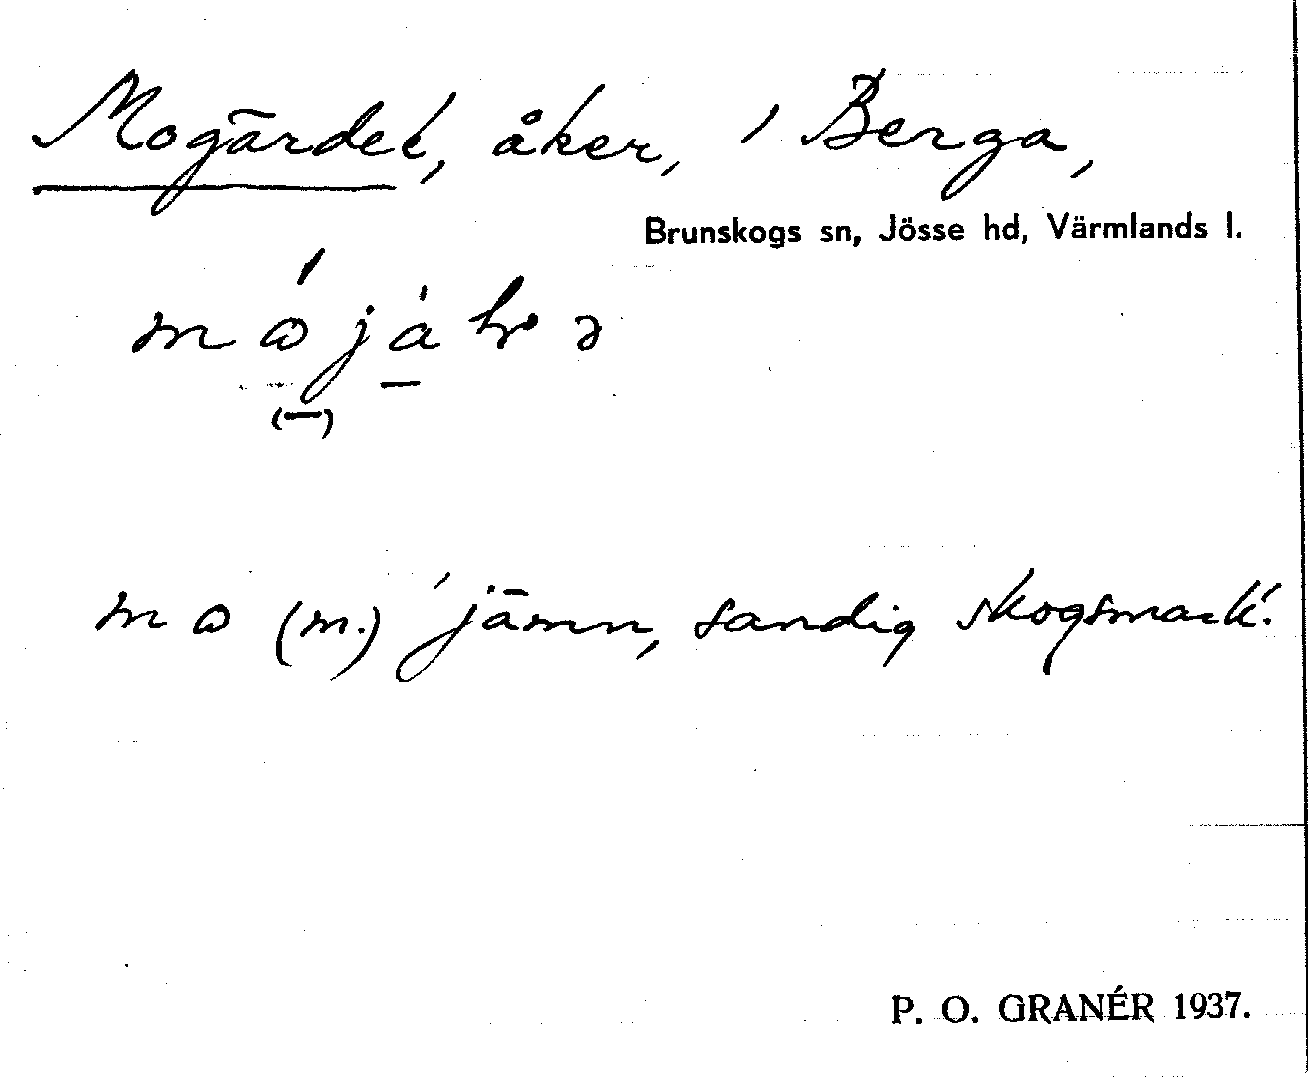 Mogärdet, åker, i Berga,
Brunskogs sn, Jösse hd, Värmlands l.
mo (m.) 'jämn, sandig skogsmark'.
P. O. GRANÉR 1937.